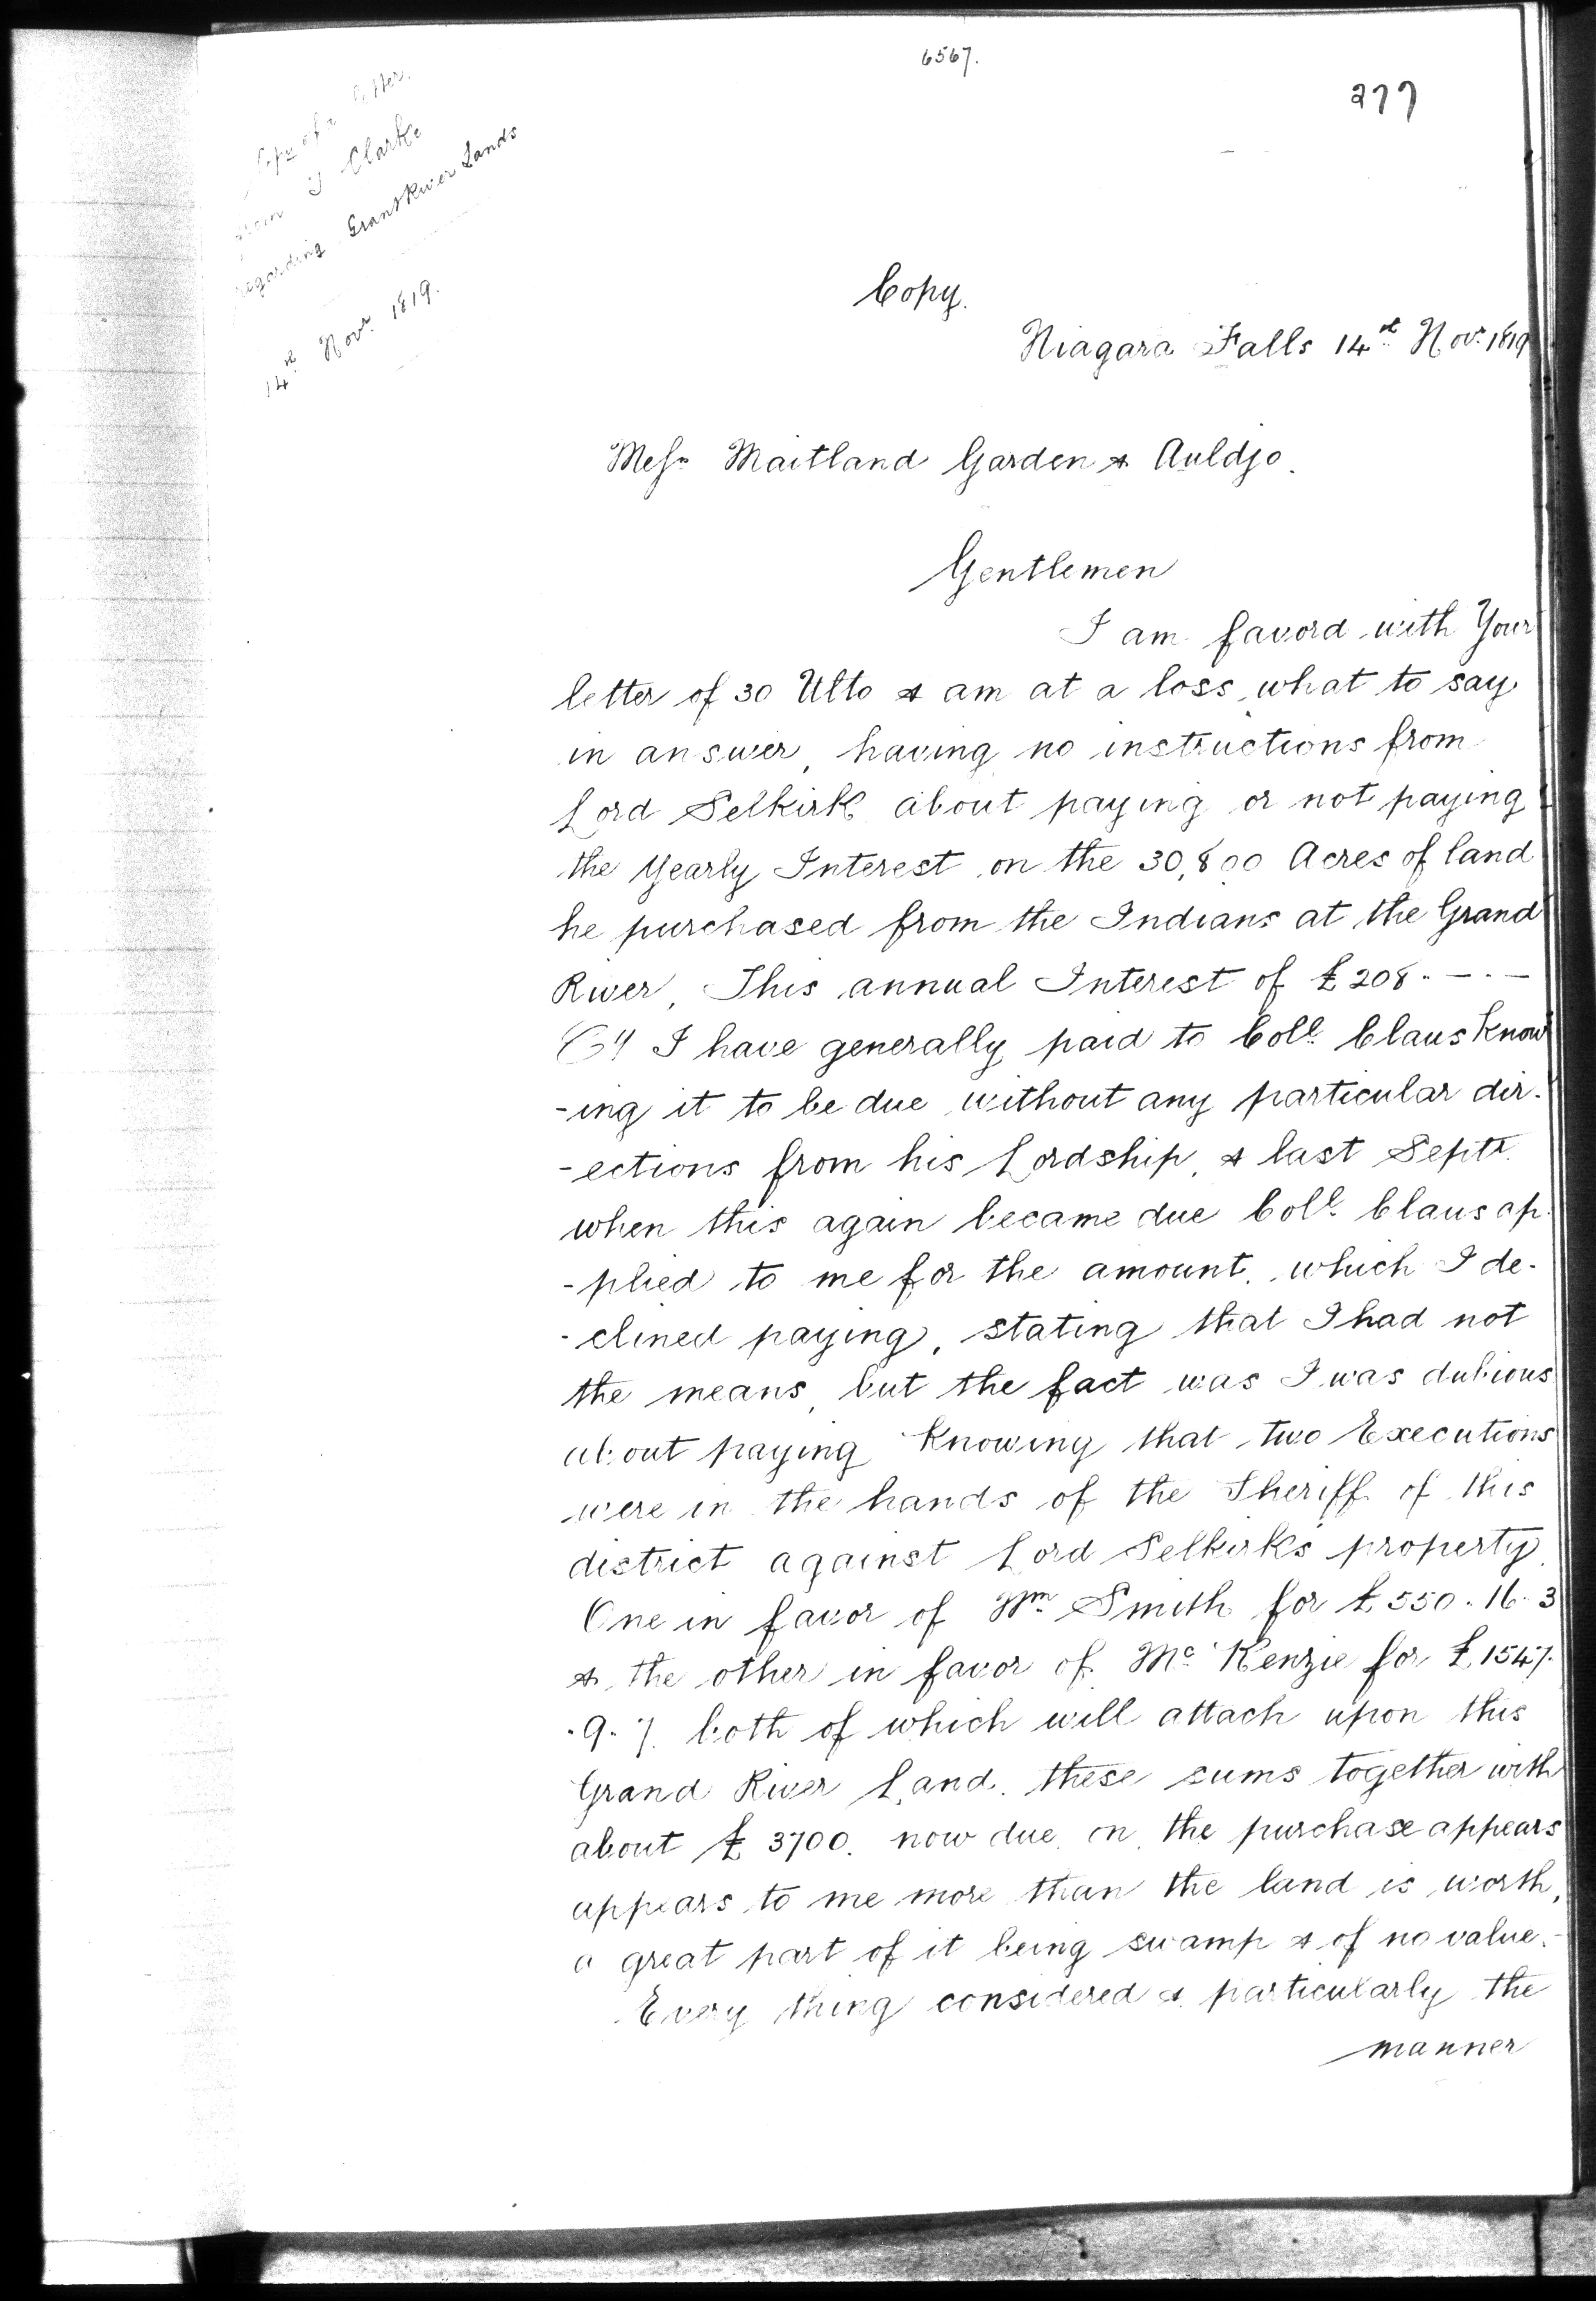 6567.
277
Copy of a letter
from T Clarke
regarding Grand River Lands
14th Novr. 1819.
Copy.
Niagara Falls 14th Novr 1819
Messrs Maitland Garden & Auldjo.
Gentlemen
I am favord with Your
letter of 30 Ulto & am at a loss what to say
in answer, having no instructions from
Lord Selkirk about paying or not paying
the Yearly Interest on the 30,800 Acres of land
he purchased from the Indians at the Grand
River, This annual Interest of £208. - . -
Cy I have generally paid to Coll. Claus know
-ing it to be due without any particular dir-
-ections from his Lordship, & last Septr.
when this again became due Coll. Claus ap-
-plied to me for the amount, which I de-
-clined paying, stating that I had not
the means, but the fact was I was dubious
about paying Knowing that two Executions
were in the hands of the Sheriff of this
district against Lord Selkirk's property.
One in favor of Wm Smith for £550. 16. 3
& the other in favor of Mc Kenzie for £1547.
.9. 7. both of which will attach upon this
Grand River Land. these sums together with
about £3700. now due on the purchase appears
appears to me more than the land is worth,
a great part of it being swamp & of no value.-
Every thing considered & particularly the
manner